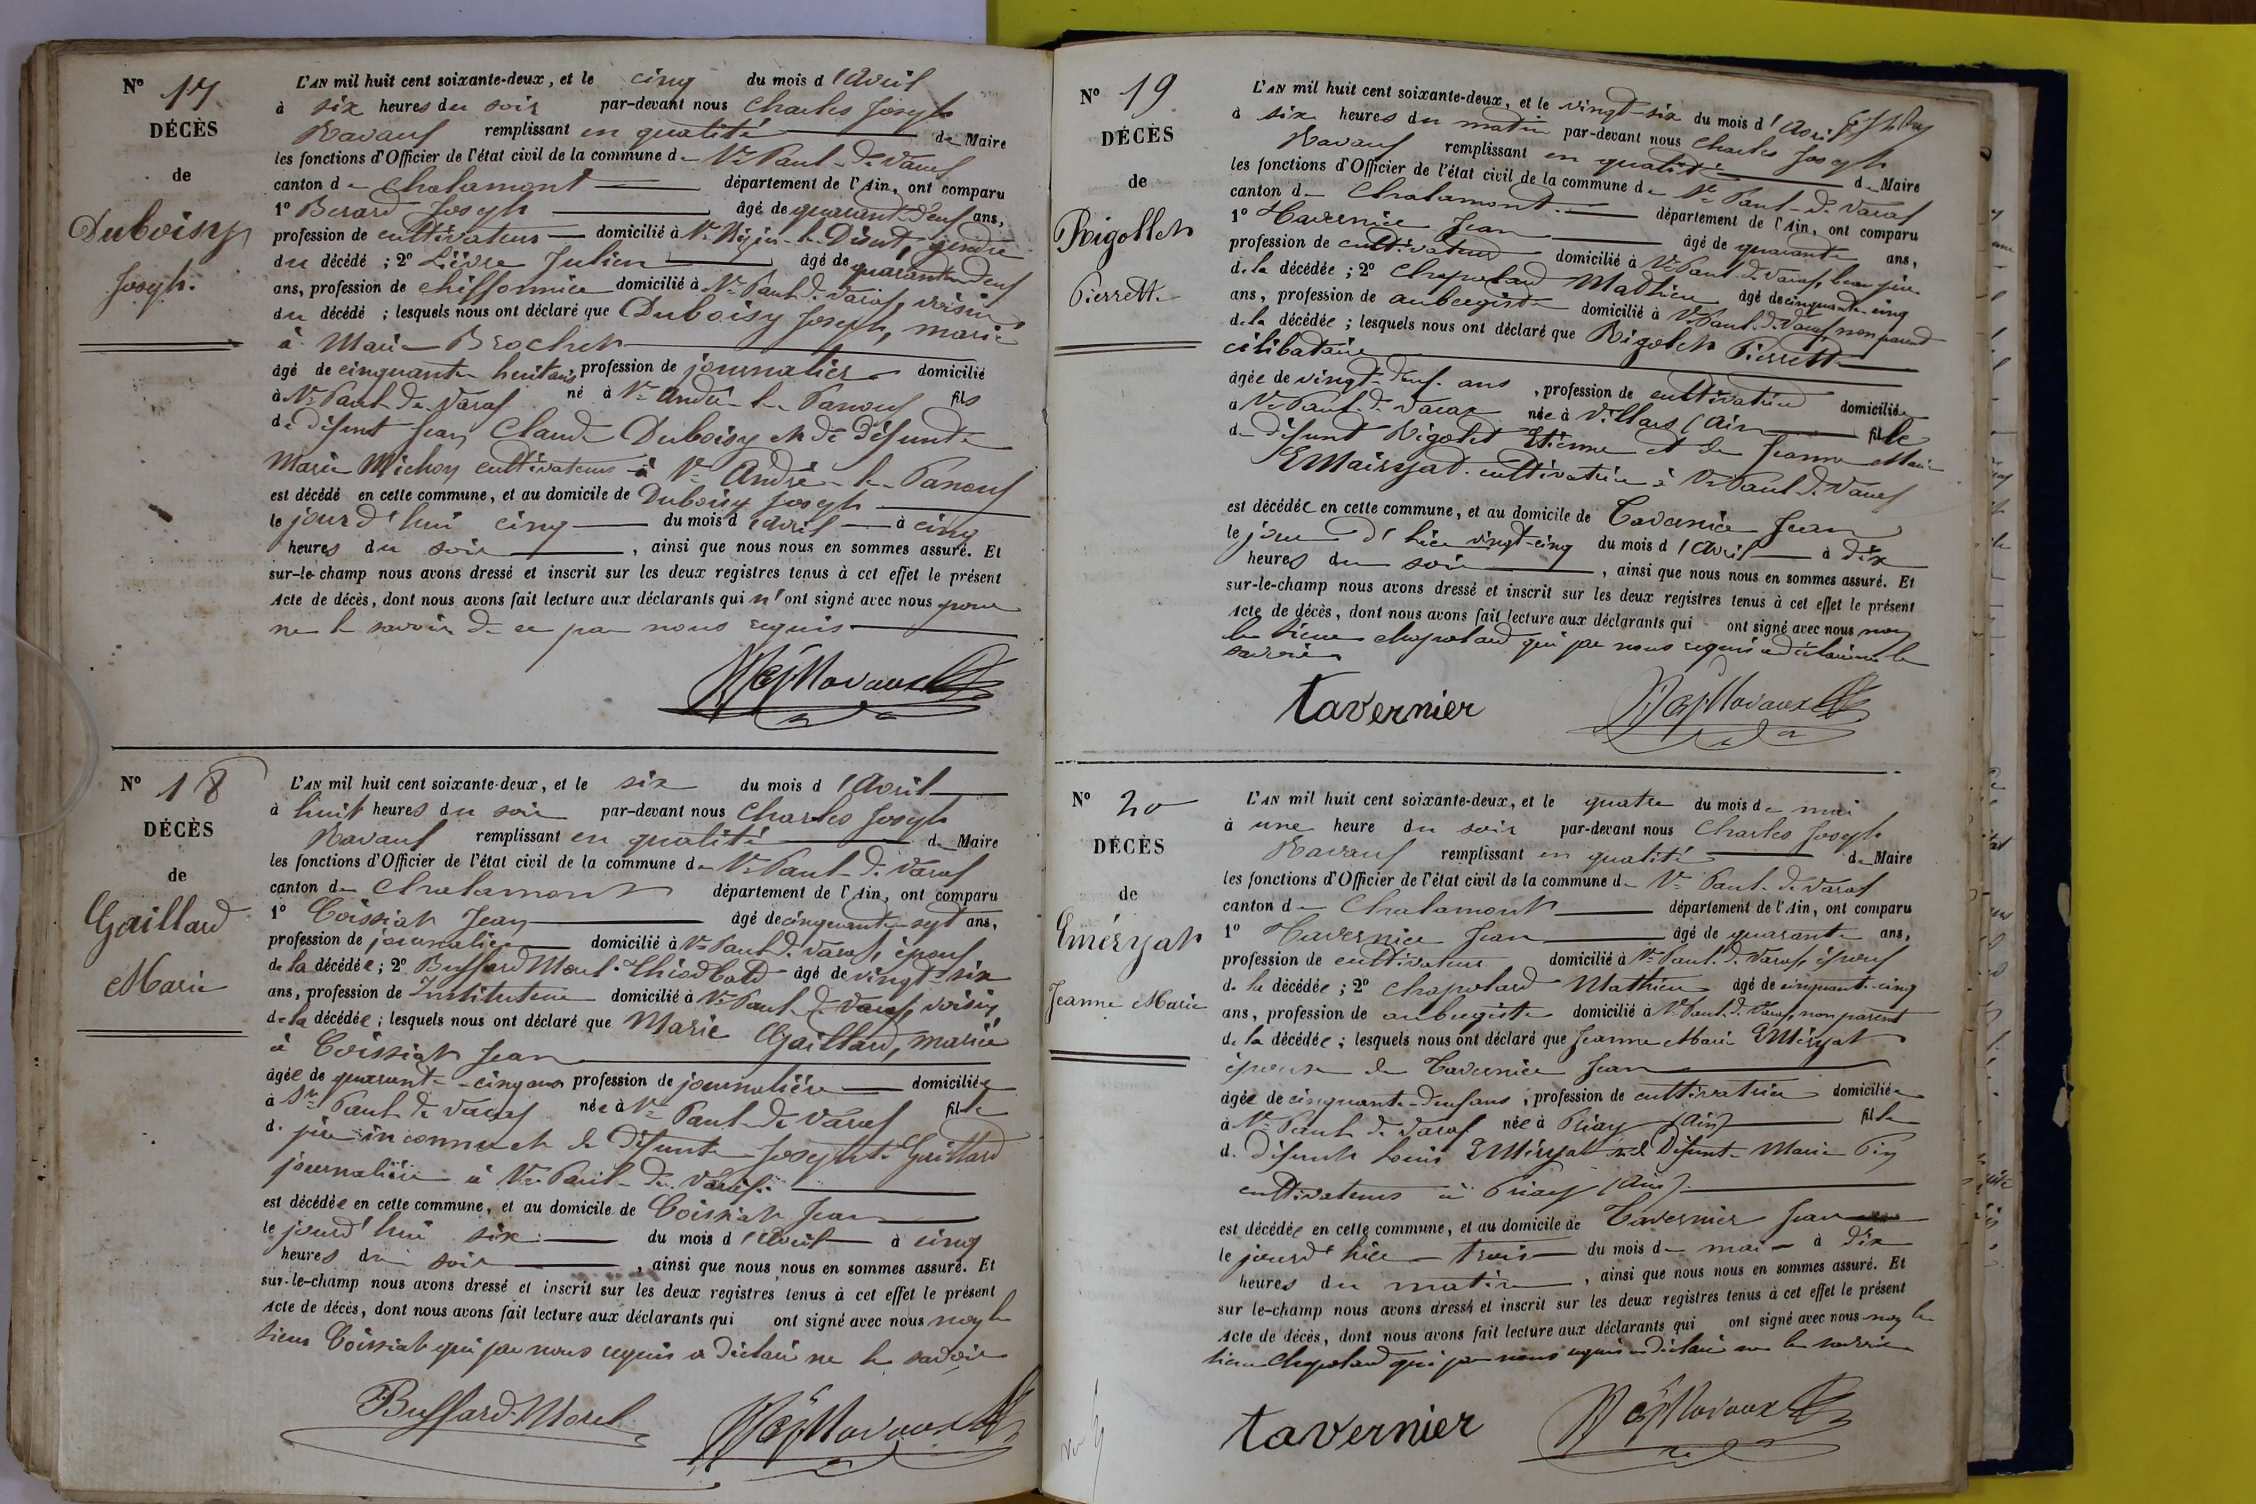 N° 17
DÉCÈS
de
Duboisy
Joseph.
L'AN mil huit cent soixante-deux, et le cinq du mois d'Avril
à six heures du soir par-devant nous Charles Joseph
Ravaux remplissant en qualité de Maire
les fonctions d'Officier de l'état civil de la commune de St Paul-de-Varax
canton de Chalamont département de l'Ain, ont comparu
1° Berard Joseph âgé de quarante-neuf ans,
profession de cultivateur domicilié à St Nizier-le-Désert, gendre
du décédé ; 2° Lièvre Julien âgé de quarante-neuf
ans, profession de chiffonnier domicilié à St Paul-de-Varax, voisin
du décédé ; lesquels nous ont déclaré que Duboisy Joseph, marié
à Marie Brochet
âgé de cinquante huit ans profession de journalier domicilié
à St Paul-de-Varax né à St André-le-Panoux fils
de défunt Jean Claude Duboisy et de défunte
Marie Michon cultivateurs à St André-le-Panoux
est décédé en cette commune, et au domicile de Duboisy Joseph
le jourd'hui cinq du mois d'avril à cinq
heures du soir, ainsi que nous nous en sommes assuré. Et
sur-le-champ nous avons dressé et inscrit sur les deux registres tenus à cet effet le présent
Acte de décès, dont nous avons fait lecture aux déclarants qui n'ont signé avec nous pour
ne le savoir de ce par nous requis
Ravaux
N° 18
DÉCÈS
de
Gaillard
Marie
L'AN mil huit cent soixante-deux, et le six du mois d'Avril
à huit heures du soir par-devant nous Charles Joseph
Ravaux remplissant en qualité de Maire
les fonctions d'Officier de l'état civil de la commune de St Paul-de-Varax
canton de Chalamont département de l'Ain, ont comparu
1° Coissiat Jean âgé de cinquante-sept ans,
profession de journalier domicilié à St Paul-de-Varax, époux
de la décédée ; 2° Buffard Morel Théodbald âgé de vingt-six
ans, profession de Instituteur domicilié à St Paul-de-Varax, voisin
de la décédée ; lesquels nous ont déclaré que Marie Gaillard, mariée
à Coissiat Jean
âgée de quarante-cinq ans profession de journalière domiciliée
à St Paul de Varax née à St Paul-de-Varax fille
de père inconnu et de défunte Josephte Gaillard
journalière à St Paul-de-Varax
est décédée en cette commune, et au domicile de Coissiat Jean
le jourd'hui six du mois d'avril à cinq
heures du soir, ainsi que nous nous en sommes assuré. Et
sur-le-champ nous avons dressé et inscrit sur les deux registres tenus à cet effet le présent
Acte de décès, dont nous avons fait lecture aux déclarants qui ont signé avec nous non le
sieur Coissiat qui par nous requis a déclaré ne le savoir
Buffard-Morel
Ravaux
N° 19
DÉCÈS
de
Rigollet
Pierrette
L'AN mil huit cent soixante-deux, et le vingt-six du mois d'Avril
à six heures du matin par-devant nous Charles Joseph
Ravaux remplissant en qualité de Maire
les fonctions d'Officier de l'état civil de la commune de St Paul-de-Varax
canton de Chalamont département de l'Ain, ont comparu
1° Tavernier Jean âgé de quarante ans,
profession de cultivateur domicilié à St Paul-de-Varax, beau-père
de la décédée ; 2° Chapoland Mathieu âgé de cinquante-cinq
ans, profession de aubergiste domicilié à St Paul-de-Varax, non parent
de la décédée ; lesquels nous ont déclaré que Rigolet Pierrette
célibataire
âgée de vingt-neuf ans, profession de cultivatrice domiciliée
à St Paul-de-Varax née à Villars (Ain) fille
de défunt Rigolet Etienne et de Jeanne Marie
Emairyat cultivatrice à St Paul-de-Varax
est décédée en cette commune, et au domicile de Tavernier Jean
le jour d'hier vingt-cinq du mois d'Avril à dix
heures du soir, ainsi que nous nous en sommes assuré. Et
sur-le-champ nous avons dressé et inscrit sur les deux registres tenus à cet effet le présent
Acte de décès, dont nous avons fait lecture aux déclarants qui ont signé avec nous non
le sieur Chapoland qui par nous requis a déclaré ne le
savoir
tavernier
Ravaux
N° 20
DÉCÈS
de
Eméryat
Jeanne Marie
L'AN mil huit cent soixante-deux, et le quatre du mois de mai
à une heure du soir par-devant nous Charles Joseph
Ravaux remplissant en qualité de Maire
les fonctions d'Officier de l'état civil de la commune de St Paul-de-Varax
canton de Chalamont département de l'Ain, ont comparu
1° Tavernier Jean âgé de quarante ans,
profession de cultivateur domicilié à St Paul-de-Varax, époux
de la décédée ; 2° Chapoland Mathieu âgé de cinquante-cinq
ans, profession de aubergiste domicilié à St Paul-de-Varax, non parent
de la décédée ; lesquels nous ont déclaré que Jeanne Marie Eméryat
épouse de Tavernier Jean
âgée de cinquante-neuf ans, profession de cultivatrice domiciliée
à St Paul-de-Varax née à Priay (Ain) fille
de défunt Louis Eméryat et de défunte Marie Pin
cultivateurs à Priay (Ain)
est décédée en cette commune, et au domicile de Tavernier Jean
le jourd'hier trois du mois de mai à dix
heures du matin, ainsi que nous nous en sommes assuré. Et
sur le-champ nous avons dressé et inscrit sur les deux registres tenus à cet effet le présent
Acte de décès, dont nous avons fait lecture aux déclarants qui ont signé avec nous non le
sieur Chapoland qui par nous requis a déclaré ne le savoir
tavernier
Ravaux